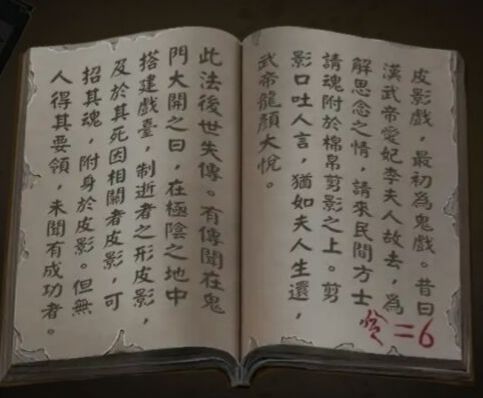 皮影戲，最初為鬼戲。昔日
漢武帝愛妃李夫人故去，為
解思念之情，請來民間方士
請魂附於棉帛剪影之上。剪
影口吐人言，猶如夫人生還，
武帝龍顏大悅。
此法後世失傳。有傳聞在鬼
門大開之日，在極陰之地中
搭建戲臺，制逝者之形皮影，
及於其死因相關者皮影，可
招其魂，附身於皮影。但無
人得其要領，未聞有成功者。
=6